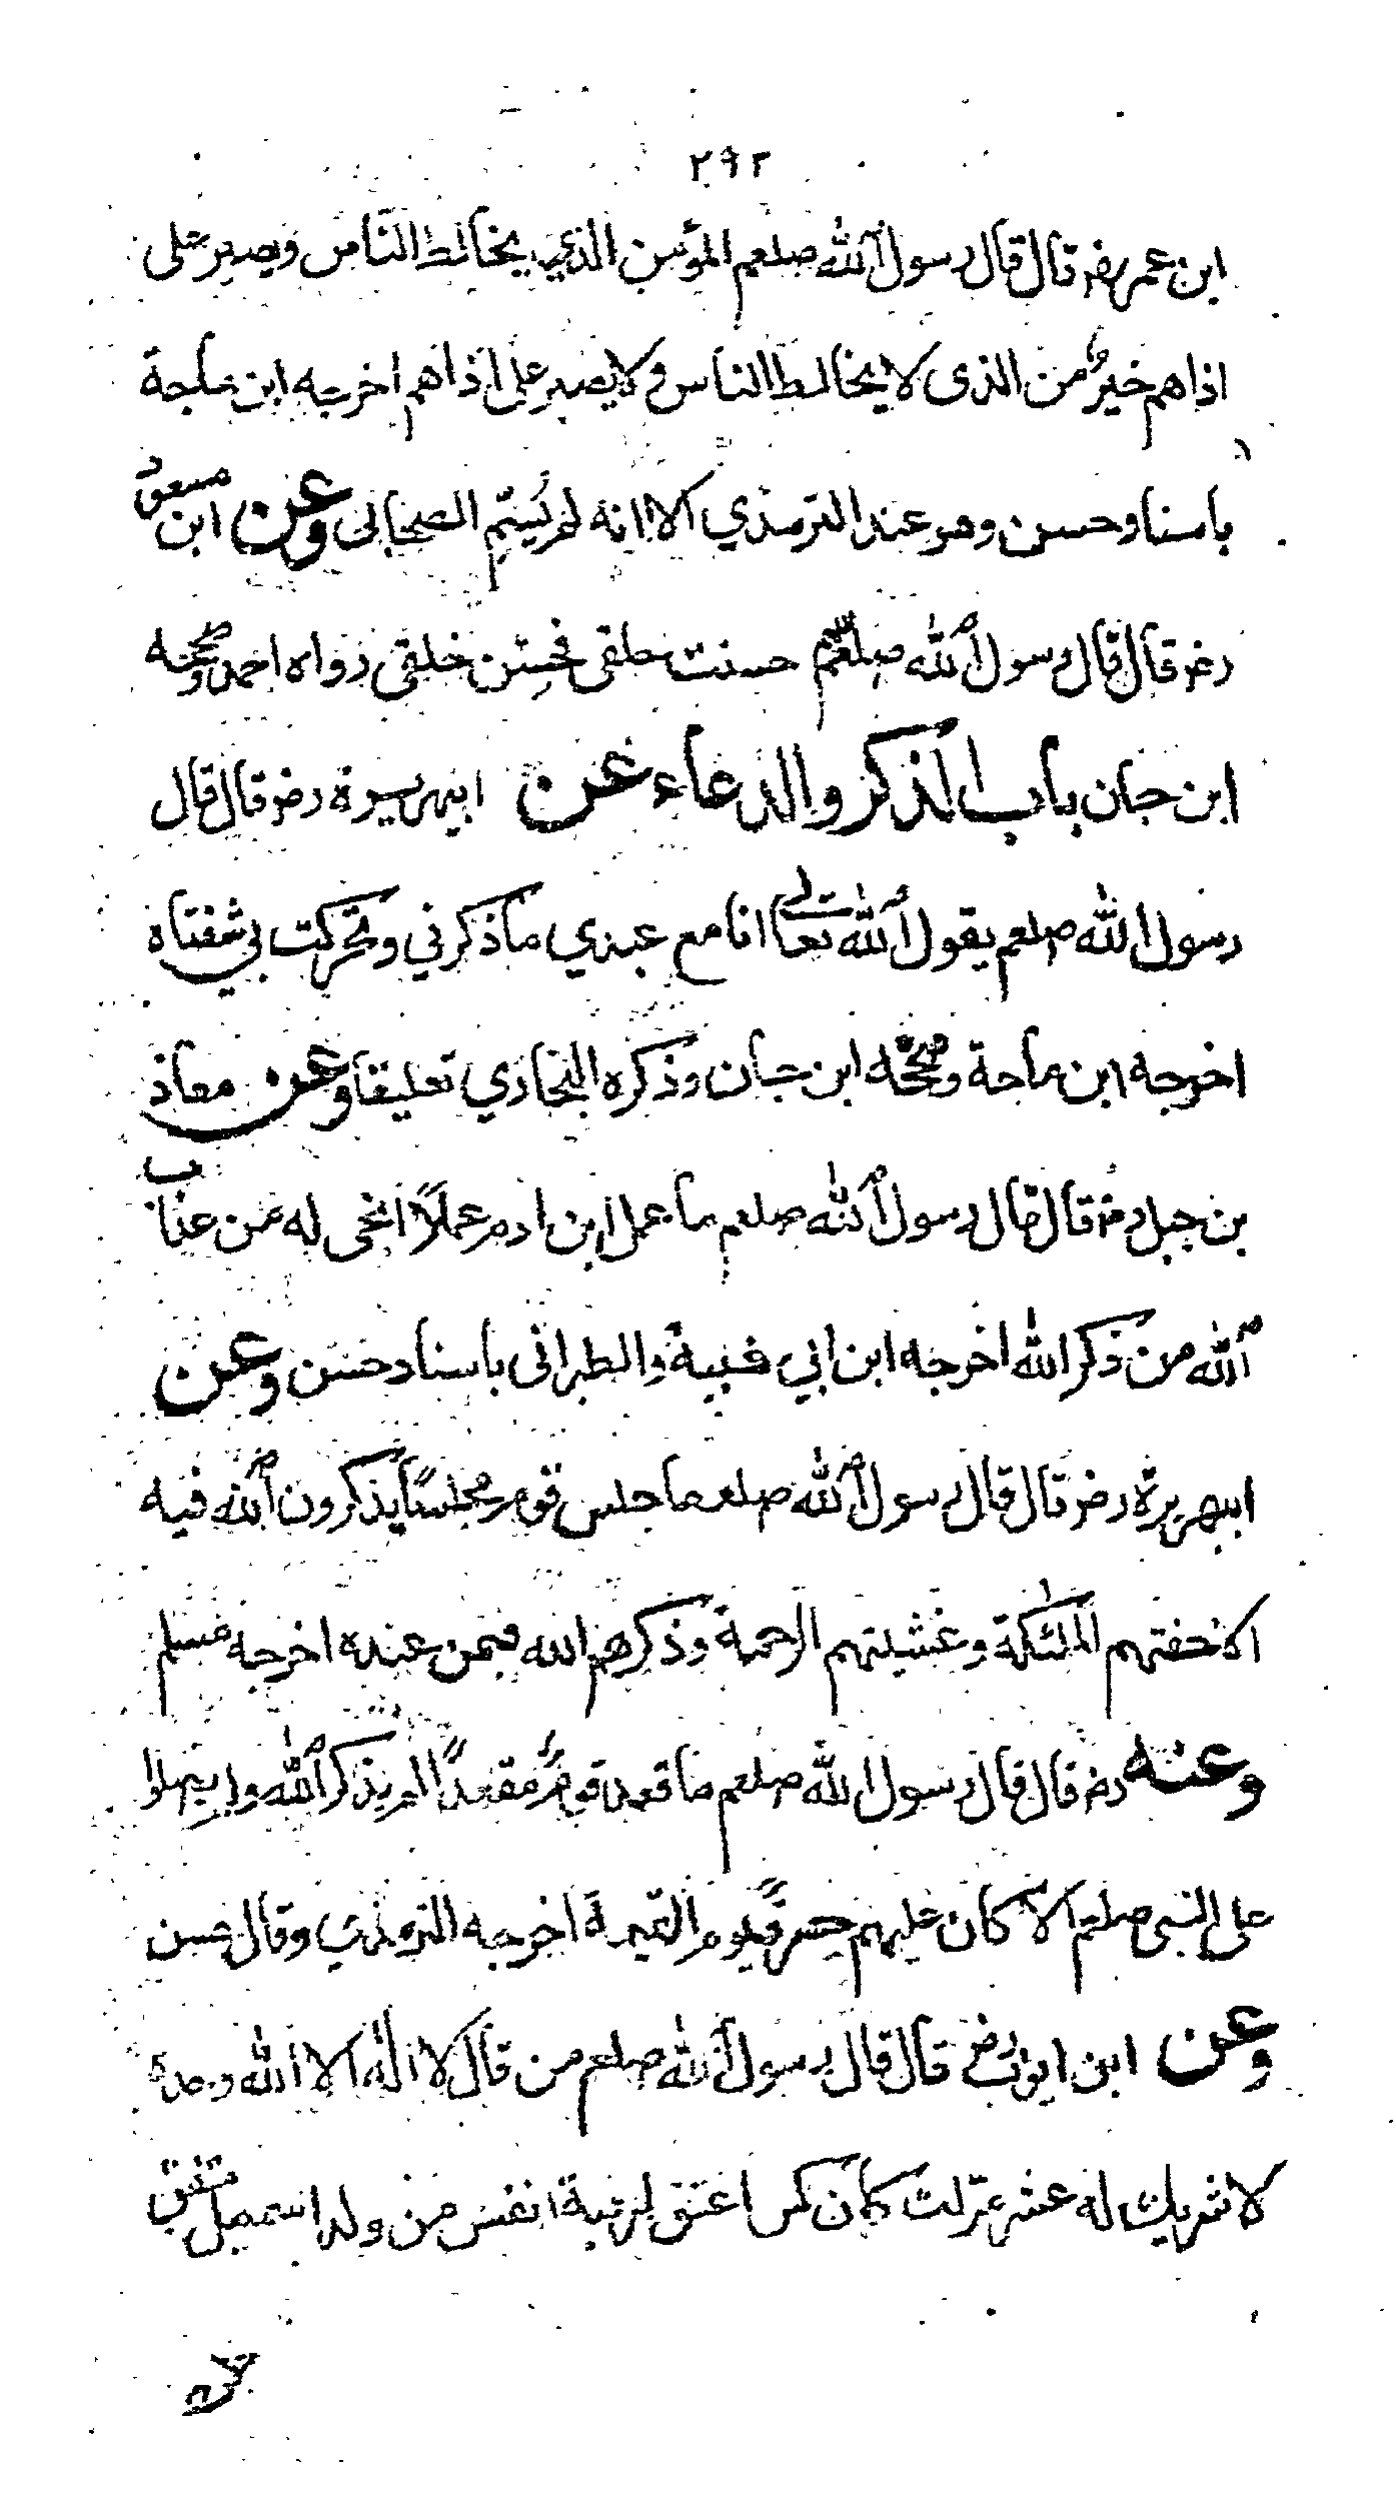 ٢٩٢
ابن عمر رضہ قال قال رسول الله صلعم المؤمن الذي يخالط الناس ويصبر على
اذاهم خيرٌ من الذى لا يخالط الناس ولا يصبر على اذاهم اخرجه ابن ماجة
باسناد حسن وهو عند الترمذي الا انه لم يُسمّ الصحابى وعن ابن مسعود
رضہ قال قال رسول الله صلعم حسنت خلقى فحسِّن خلقى رواه احمد وصححه
ابن حبان باب الذكر والدعاء عن ابيهريرة رضہ قال قال
رسول الله صلعم يقول الله تعالى انا مع عبدي ما ذكرني وتحركت بي شفتاه
اخرجه ابن ماجة وصححه ابن حبان وذكره البخاري تعليقا وعن معاذ
بن جبل رضہ قال قال رسول الله صلعم ما عمل ابن ادم عملاً انجى له من عذاب
الله من ذكر الله اخرجه ابن ابي شيبة والطبرانى باسناد حسن وعن
ابيهريرة رضہ قال قال رسول الله صلعم ما جلس قوم مجلسًا يذكرون الله فيه
الا حفتهم الملئكة وغشيتهم الرحمة وذكرهم الله فيمن عنده اخرجه مسلم
وعنه رضہ قال قال رسول الله صلعم ما قعد قومٌ مقعدًا لم يذكر الله ولم يصلوا
على النبى صلعم الا كان عليهم حسرةً يوم القيمة اخرجه الترمذي وقال حسن
وعن ابن ايوب رضہ قال قال رسول الله صلعم من قال لا اله الا الله وحده
لا شريك له عشر مرات كان كمن اعتق اربعة انفس من ولد اسمعيل متفق